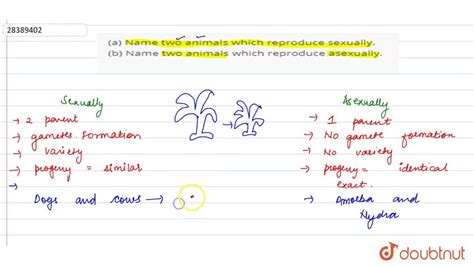 28389402
(a) Name two animals which reproduce sexually.
(b) Name two animals which reproduce asexually.
Sexually
→ 2 parent
→ gametes formation
→ variety
→ progeny = similar
→
Dogs and cows →
Asexually
→ 1 parent
→ No gamete formation
→ No variety
→ progeny = identical
exact.
→ Amoeba and
Hydra
doubtnut